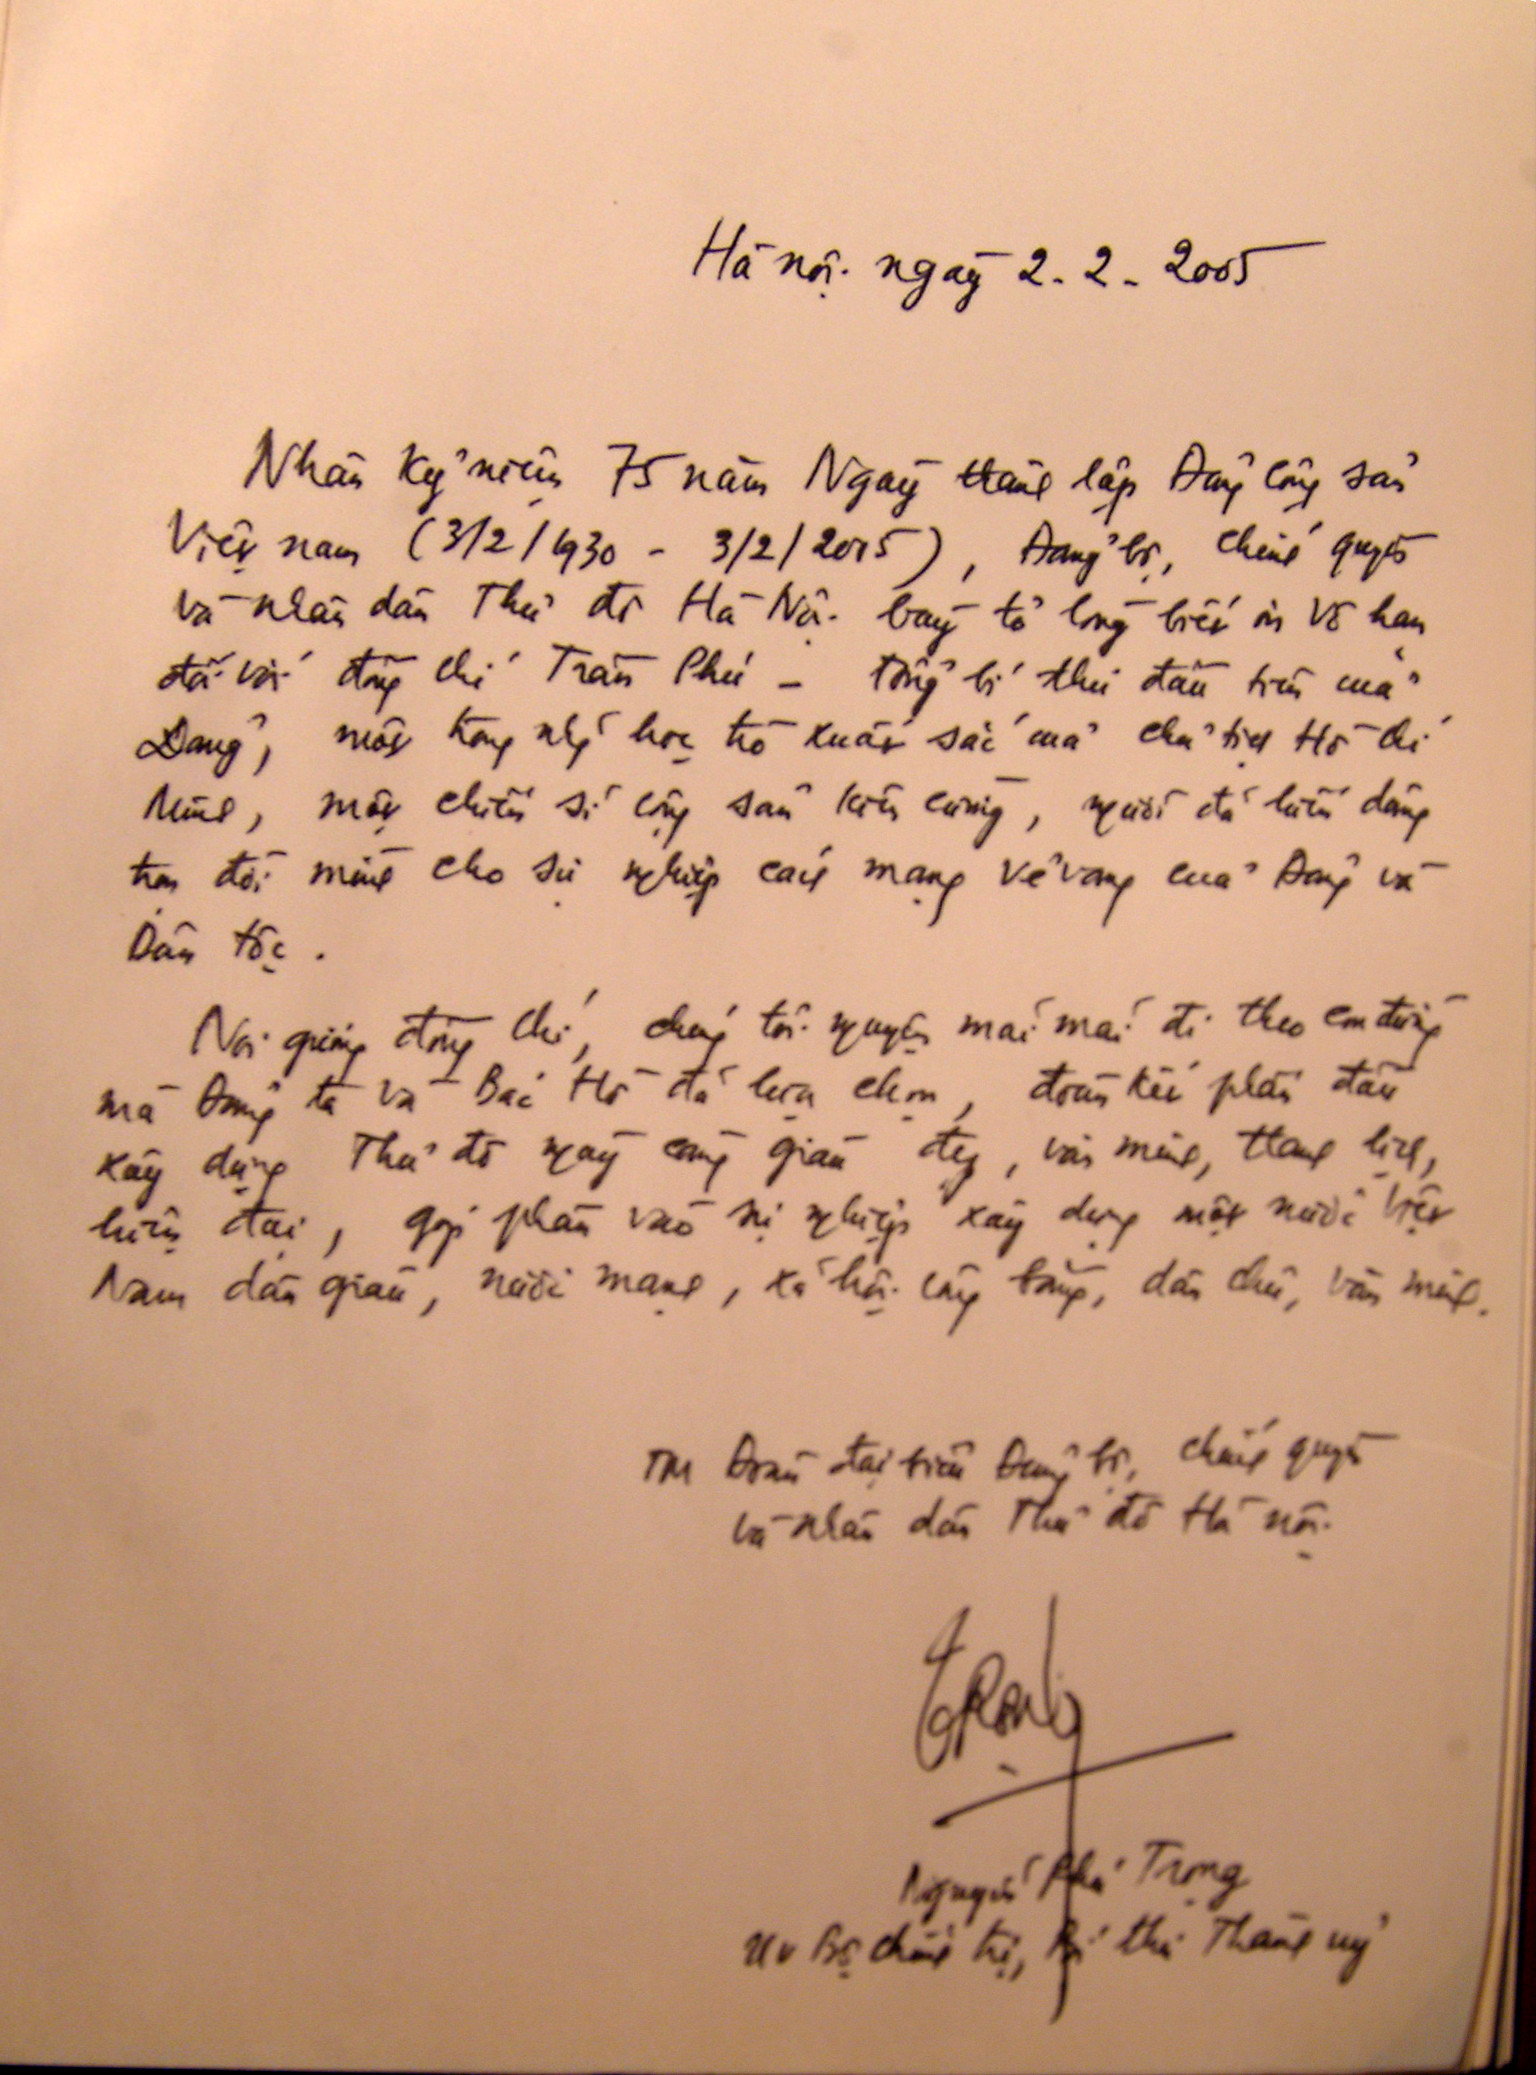 Hà nội ngày 2-2-2005
Nhân Kỷ niệm 75 năm Ngày thành lập Đảng Cộng sản
Việt nam (3/2/1930 - 3/2/2005), Đảng bộ, chính quyền
và nhân dân Thủ đô Hà Nội bày tỏ lòng biết ơn vô hạn
đối với đồng chí Trần Phú - Tổng bí thư đầu tiên của
Đảng, một trong những học trò xuất sắc của chủ tịch Hồ Chí
Minh, một chiến sĩ cộng sản kiên cường, người đã hiến dâng
trọn đời mình cho sự nghiệp cách mạng vẻ vang của Đảng và
Dân tộc.
Noi gương đồng chí, chúng tôi nguyện mãi mãi đi theo con đường
mà Đảng ta và Bác Hồ đã lựa chọn, đoàn kết phấn đấu
xây dựng Thủ đô ngày càng giàu đẹp, văn minh, thanh lịch,
hiện đại, góp phần vào sự nghiệp xây dựng một nước Việt
Nam dân giàu, nước mạnh, xã hội công bằng, dân chủ, văn minh.
TM Đoàn đại biểu Đảng bộ, chính quyền
và nhân dân Thủ đô Hà nội
TRọng
Nguyễn Phú Trọng
UV Bộ chính trị, Bí thư Thành uỷ